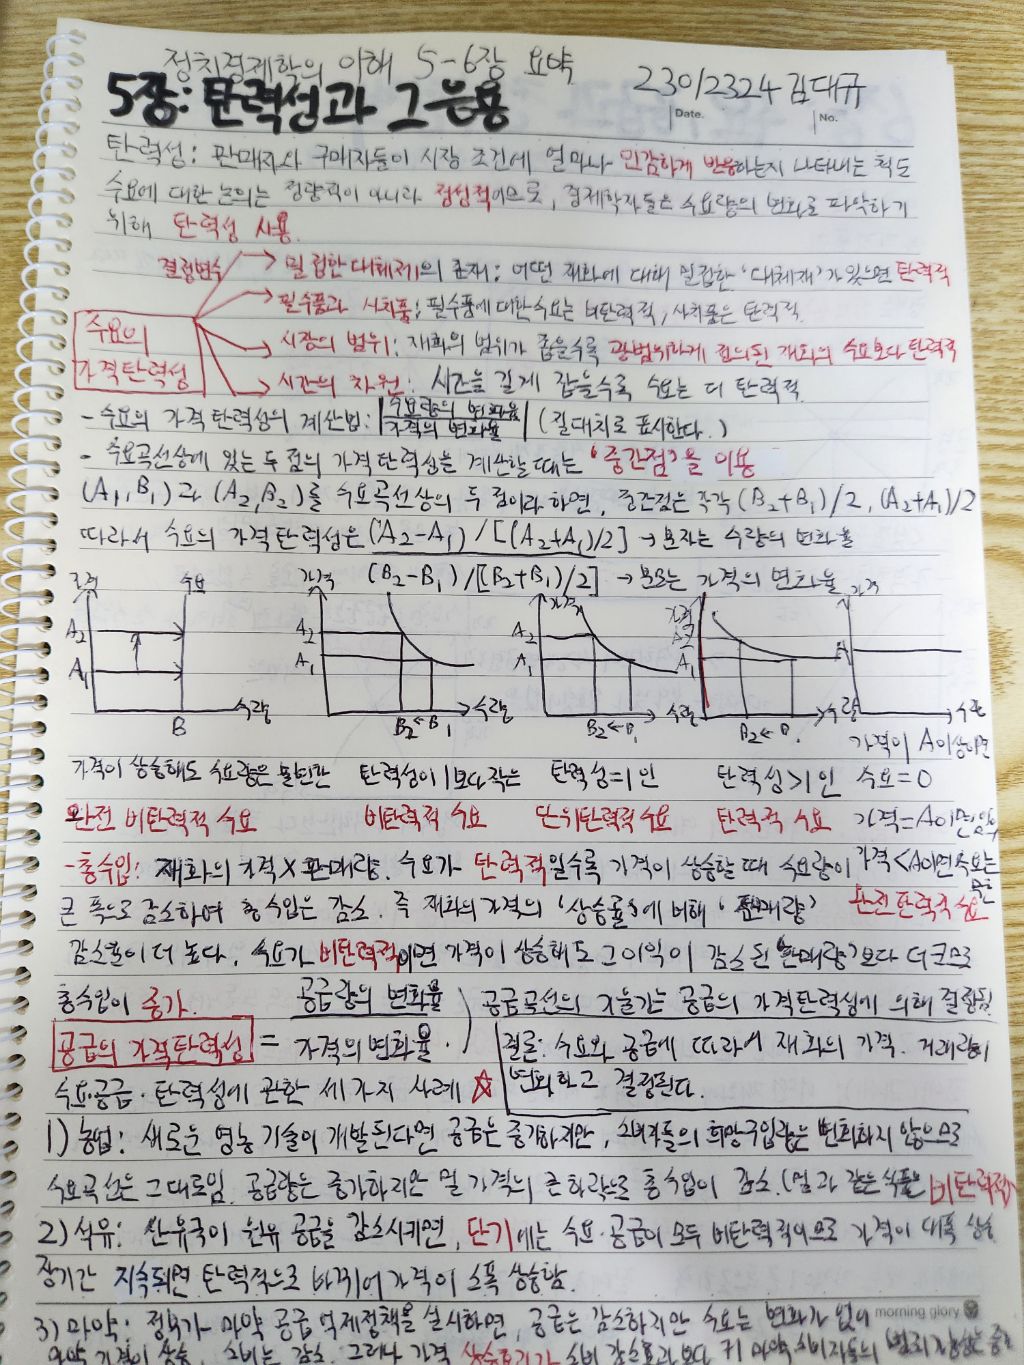 정치경제학의 이해 5-6장 요약
23012324 김대규
5장: 탄력성과 그 응용
Date.
No.
탄력성: 판매자와 구매자들이 시장 조건에 얼마나 민감하게 반응하는지 나타내는 척도
수요에 대한 논의는 정량적이 아니라 정성적이므로, 경제학자들은 수요량의 변화를 파악하기
위해 탄력성 사용.
결정변수 → 밀접한 대체재의 존재: 어떤 재화에 대해 밀접한 '대체재'가 있으면 탄력적
→ 필수품과 사치품: 필수품에 대한 수요는 비탄력적, 사치품은 탄력적.
수요의 가격탄력성
→ 시장의 범위: 재화의 범위가 좁을수록 광범위하게 정의된 재화의 수요보다 탄력적
→ 시간의 차원: 시간을 길게 잡을수록 수요는 더 탄력적.
- 수요의 가격 탄력성의 계산법: |수요량의 변화율 / 가격의 변화율| (절대치로 표시한다.)
- 수요곡선상에 있는 두 점의 가격탄력성을 계산할 때는 '중간점'을 이용
(A1, B1)과 (A2, B2)를 수요곡선상의 두 점이라 하면, 중간점은 각각 (B2+B1)/2, (A2+A1)/2
따라서 수요의 가격탄력성은 (A2-A1)/[(A2+A1)/2] → 분자는 수량의 변화율
(B2-B1)/[B2+B1)/2] → 분모는 가격의 변화율
가격 수요 A2 A1 B 수량
가격 A2 A1 B2←B1 수량
가격 A2 A1 B2← 수량
가격 A2 A1 B2← 수량
가격 A 수량
가격이 상승해도 수요량은 불변한
완전 비탄력적 수요
탄력성이 1보다 작은
비탄력적 수요
탄력성=1인
단위탄력적 수요
탄력성>1인
탄력적 수요
가격이 A이상이면
수요=0
가격=A이면
가격<A이면 수요는
무한
완전탄력적 수요
- 총수입: 재화의 가격 X 판매량. 수요가 탄력적일수록 가격이 상승할 때 수요량이
큰 폭으로 감소하여 총수입은 감소. 즉 재화의 가격의 '상승률'에 비해 '판매량'
감소율이 더 높다. 수요가 비탄력적이면 가격이 상승해도 그 이익이 감소된 '판매량'보다 더 크므로
총수입이 증가.
공급의 가격탄력성 = 공급량의 변화율 / 가격의 변화율.
공급곡선의 기울기는 공급의 가격탄력성에 의해 결정됨
결론: 수요와 공급에 따라서 재화의 가격. 거래량이
변화하고 결정된다.
수요·공급·탄력성에 관한 세 가지 사례 ☆
1) 농업: 새로운 영농 기술이 개발된다면 공급은 증가하지만, 소비자들의 희망구입량은 변화하지 않으므로
수요곡선은 그대로임. 공급량은 증가하지만 밀 가격의 큰 하락으로 총수입이 감소. (밀과 같은 식품은 비탄력적)
2) 석유: 산유국이 원유 공급을 감소시키면, 단기에는 수요·공급이 모두 비탄력적이므로 가격이 대폭 상승
장기간 지속되면 탄력적으로 바뀌어 가격이 소폭 상승함.
3) 마약: 정부가 마약 공급 억제정책을 실시하면, 공급은 감소하지만 수요는 변화가 없어
morning glory
마약 가격이 상승, 소비는 감소. 그러나 가격 상승효과가 소비 감소효과보다 커 마약 소비자들의 범죄